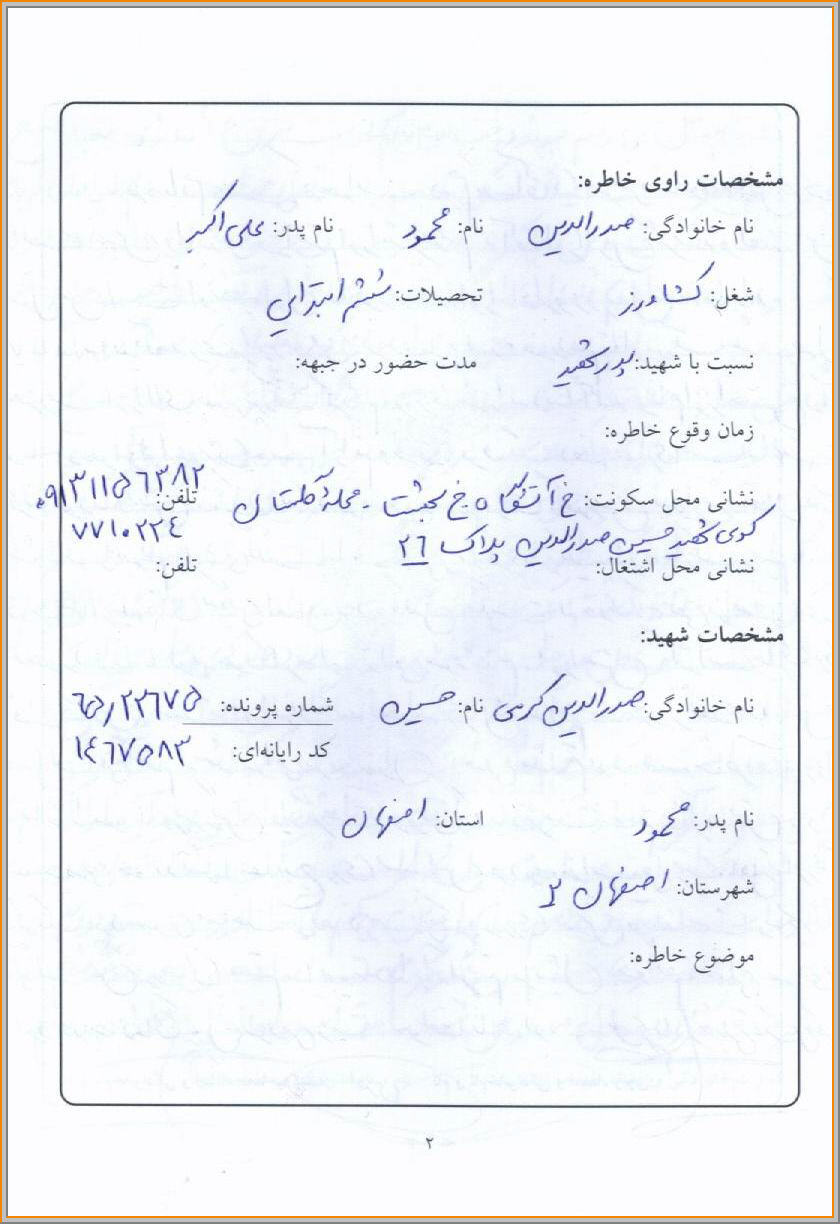 مشخصات راوی خاطره:
نام خانوادگی: صدرالدین نام: محمود نام پدر: علی اکبر
شغل: کشاورز تحصیلات: ششم ابتدایی
نسبت با شهید: پدر شهید مدت حضور در جبهه:
زمان وقوع خاطره:
نشانی محل سکونت: خ آتشگاه خ بهشت - محله گلستان تلفن: ۰۹۱۳۱۱۵۶۳۸۲
کوی شهید حسین صدرالدین پلاک ۲۶ ۷۷۱۰۲۲۴
نشانی محل اشتغال: تلفن:
مشخصات شهید:
نام خانوادگی: صدرالدین کرمی نام: حسین شماره پرونده: ۶۵/۲۲۶۷۵
کد رایانه‌ای: ۱۴۶۷۵۸۳
نام پدر: محمود استان: اصفهان
شهرستان: اصفهان ۲
موضوع خاطره:
۲